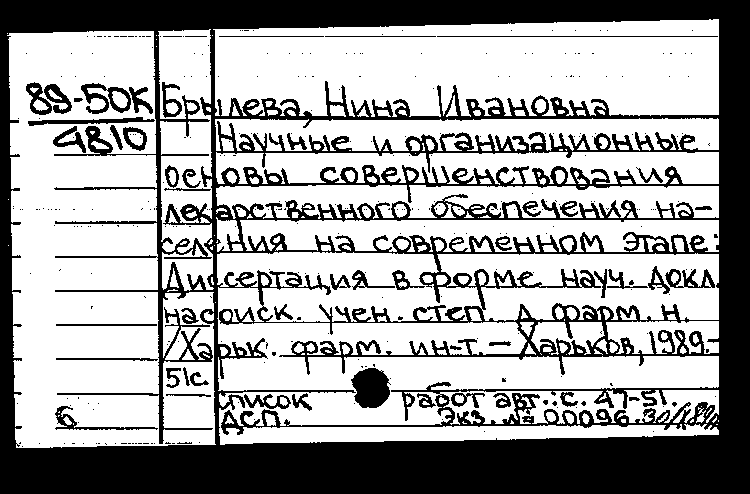 89-50К Брылева, Нина Ивановна
4810 Научные и организационные
основы совершенствования
лекарственного обеспечения на-
селения на современном этапе:
Диссертация в форме науч. докл.
на соиск. учен. степ. д. фарм. н.
/Харьк. фарм. ин-т. – Харьков, 1989.-
51с.
список работ авт.: с. 47-51.
6 ДСП. Экз. № 00096.